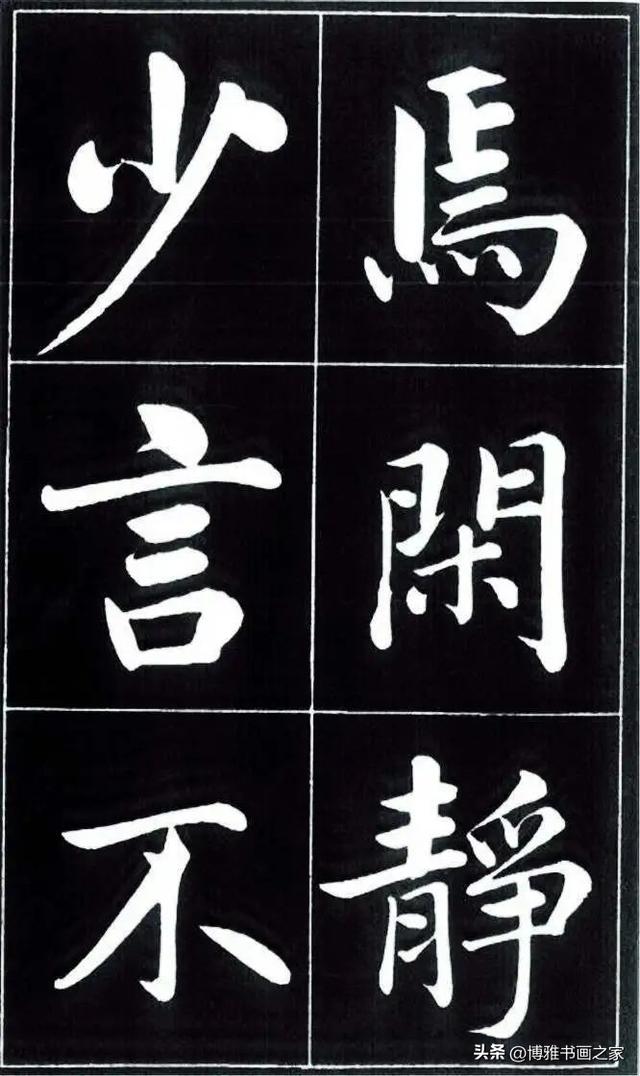 焉閑靜
少言不
头条 @博雅书画之家